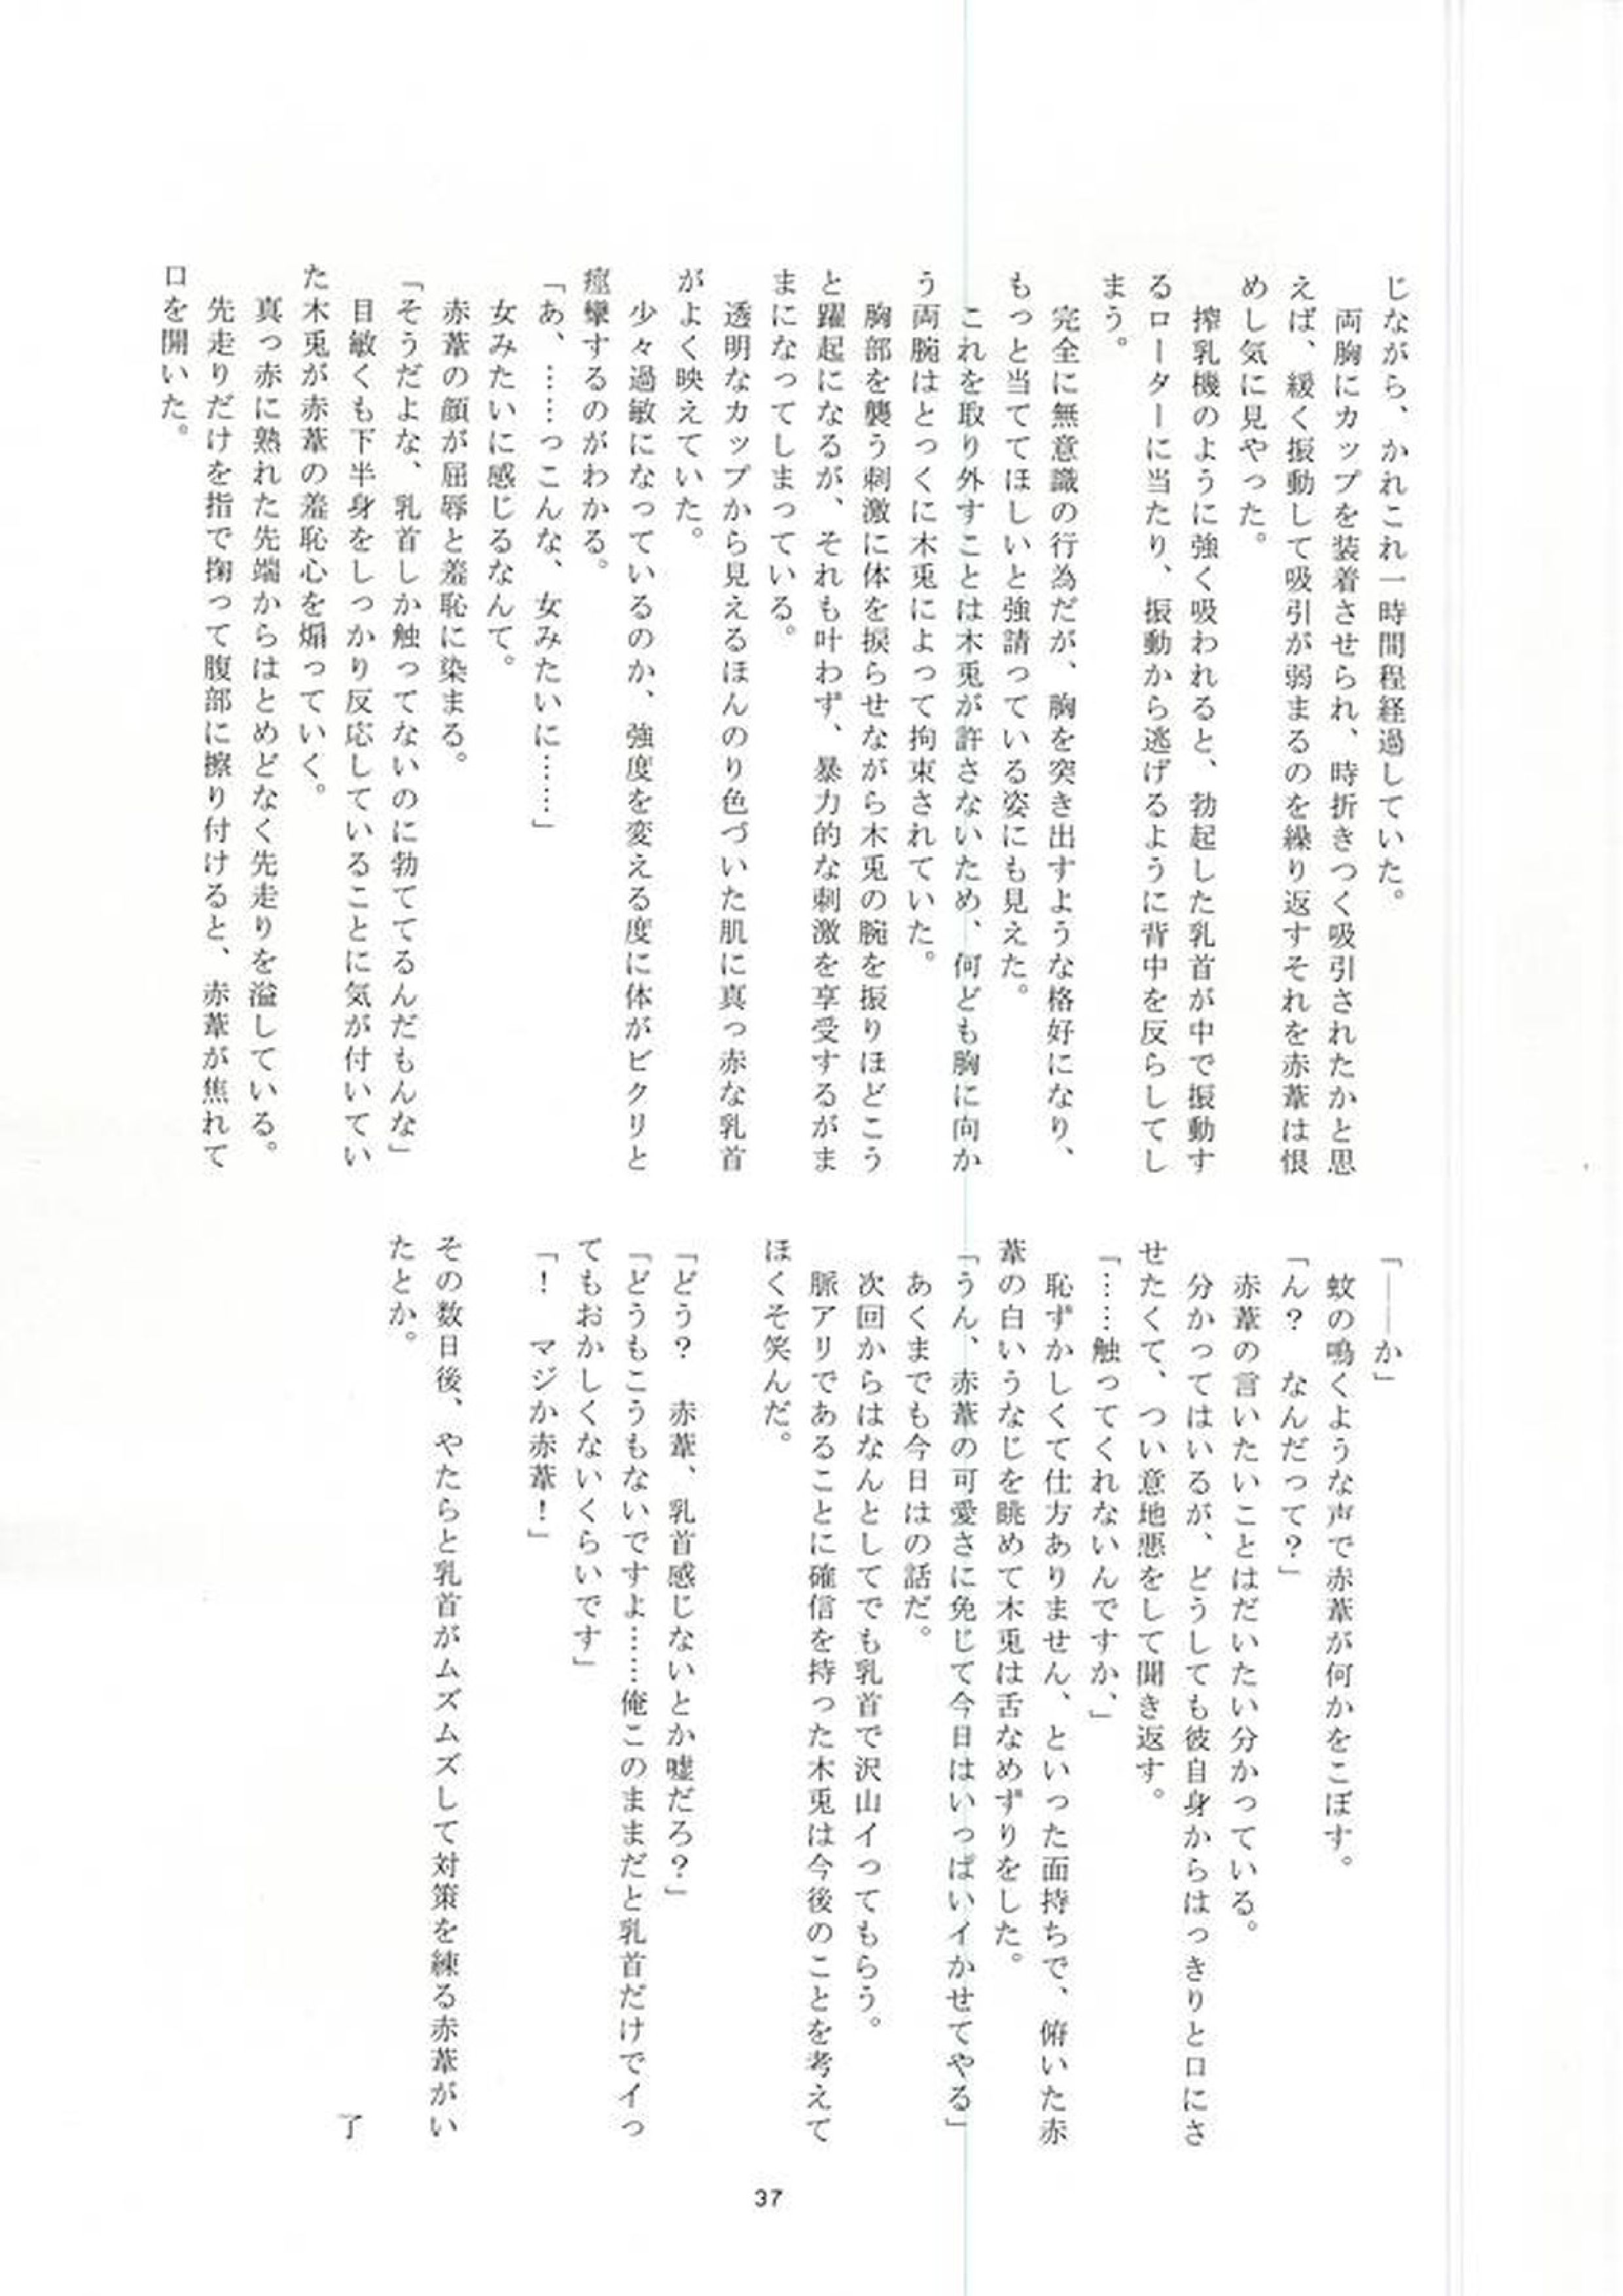 じながら、かれこれ一時間程経過していた。
　両胸にカップを装着させられ、時折きつく吸引されたかと思
えば、緩く振動して吸引が弱まるのを繰り返すそれを赤葦は恨
めし気に見やった。
　搾乳機のように強く吸われると、勃起した乳首が中で振動す
るローターに当たり、振動から逃げるように背中を反らしてし
まう。
　完全に無意識の行為だが、胸を突き出すような格好になり、
もっと当ててほしいと強請っている姿にも見えた。
　これを取り外すことは木兎が許さないため、何ども胸に向か
う両腕はとっくに木兎によって拘束されていた。
　胸部を襲う刺激に体を捩らせながら木兎の腕を振りほどこう
と躍起になるが、それも叶わず、暴力的な刺激を享受するがま
まになってしまっている。
　透明なカップから見えるほんのり色づいた肌に真っ赤な乳首
がよく映えていた。
　少々過敏になっているのか、強度を変える度に体がビクリと
痙攣するのがわかる。
「あ、……っこんな、女みたいに……」
　女みたいに感じるなんて。
　赤葦の顔が屈辱と羞恥に染まる。
「そうだよな、乳首しか触ってないのに勃ててるんだもんな」
　目敏くも下半身をしっかり反応していることに気が付いてい
た木兎が赤葦の羞恥心を煽っていく。
　真っ赤に熟れた先端からはとめどなく先走りを溢している。
　先走りだけを指で掬って腹部に擦り付けると、赤葦が焦れて
口を開いた。
「――か」
　蚊の鳴くような声で赤葦が何かをこぼす。
「ん？　なんだって？」
　赤葦の言いたいことはだいたい分かっている。
　分かってはいるが、どうしても彼自身からはっきりと口にさ
せたくて、つい意地悪をして聞き返す。
「……触ってくれないんですか、」
　恥ずかしくて仕方ありません、といった面持ちで、俯いた赤
葦の白いうなじを眺めて木兎は舌なめずりをした。
「うん、赤葦の可愛さに免じて今日はいっぱいイかせてやる」
　あくまでも今日はの話だ。
　次回からはなんとしてでも乳首で沢山イってもらう。
　脈アリであることに確信を持った木兎は今後のことを考えて
ほくそ笑んだ。
「どう？　赤葦、乳首感じないとか嘘だろ？」
「どうもこうもないですよ……俺このままだと乳首だけでイっ
てもおかしくないくらいです」
「！　マジか赤葦！」
その数日後、やたらと乳首がムズムズして対策を練る赤葦がい
たとか。
了
37